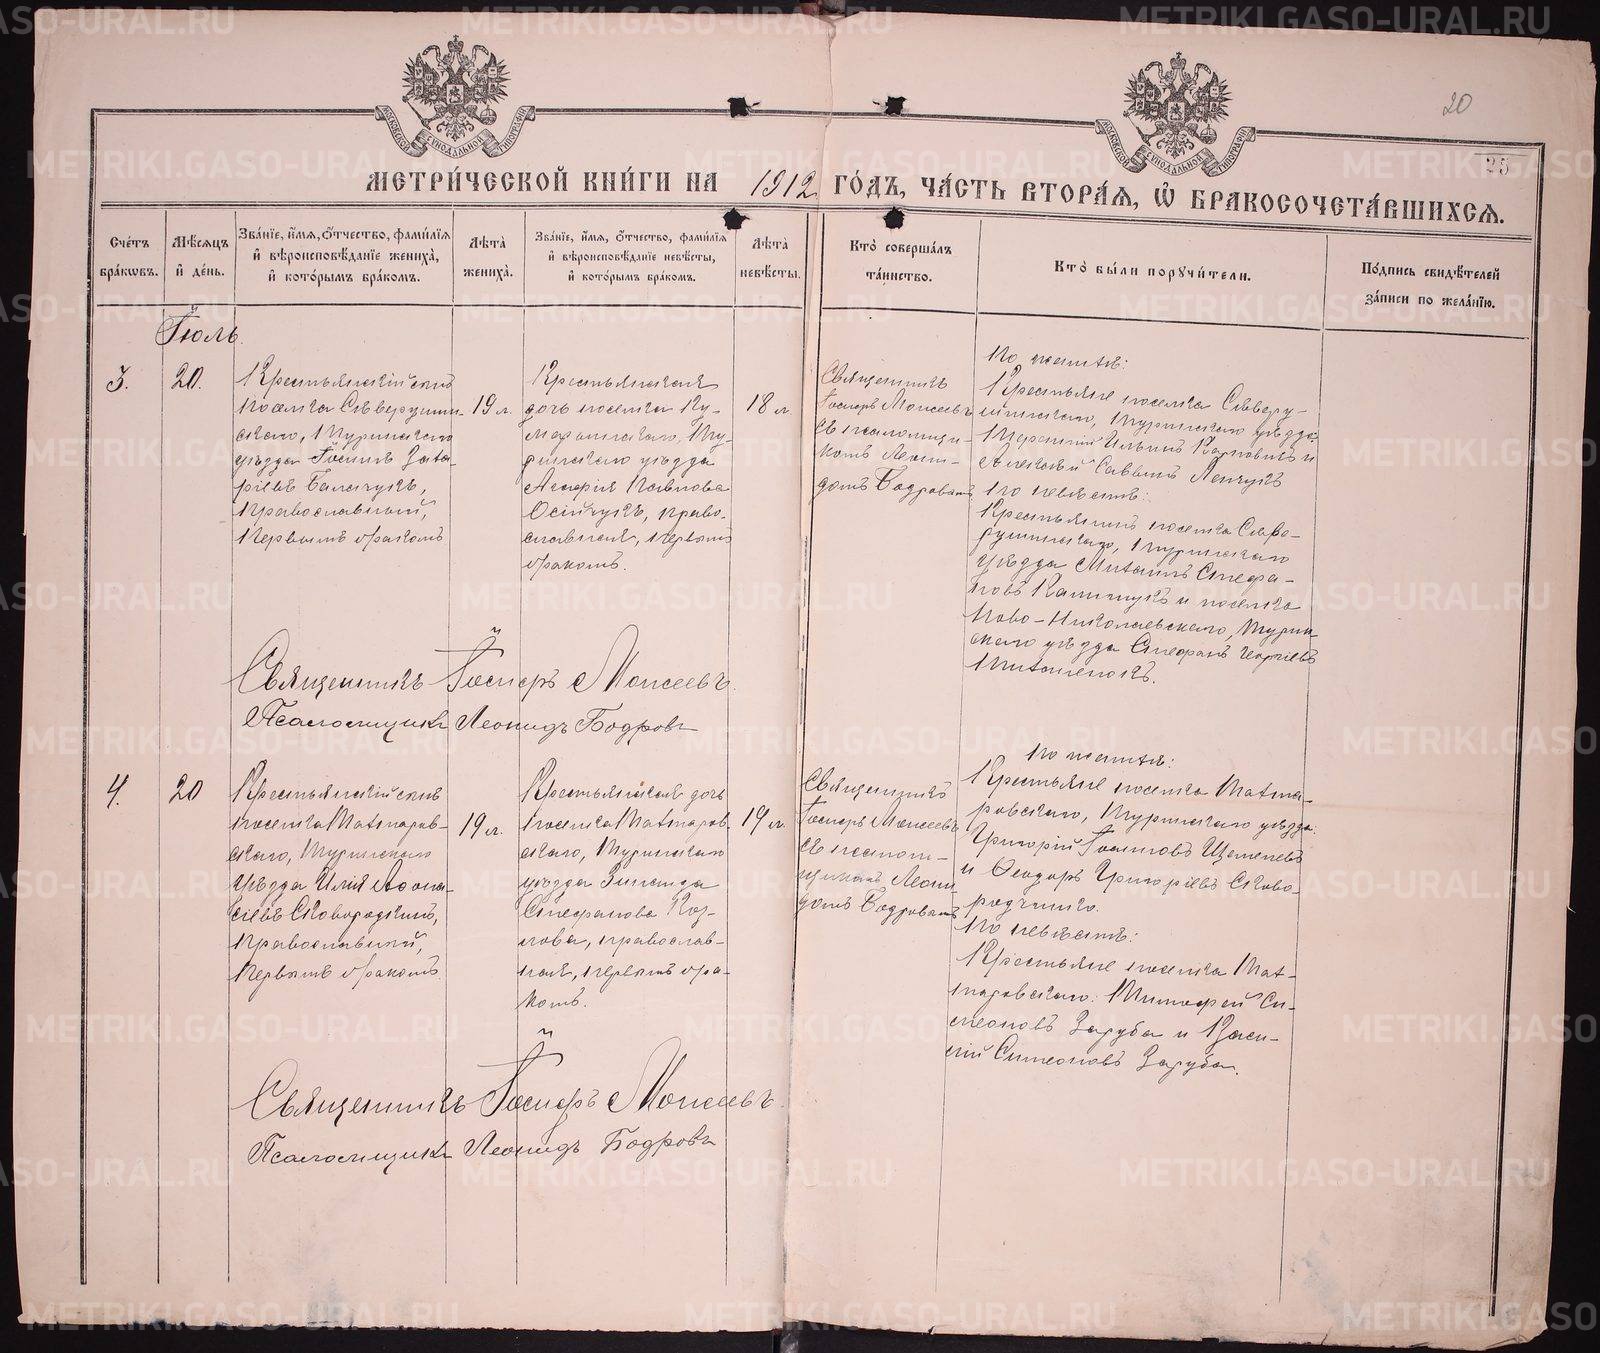 МЕТРИ́ЧЕСКОЙ КНИ́ГИ НА 1912 ГО́ДЪ, ЧА́СТЬ ВТОРА́Я, Ѡ҆ БРАКОСОЧЕТА́ВШИХСЯ.
20
25
МОСКОВСКОЙ СѴНОДАЛЬНОЙ ТИПОГРАФІИ
МОСКОВСКОЙ СѴНОДАЛЬНОЙ ТИПОГРАФІИ
Сче́тъ
бра́кѡвъ.
Мѣ́сяцъ
и҆ де́нь.
Зва́нїе, и҆́мя, ѻ҆́тчество, фами́лїя
и҆ вѣроисповѣ́данїе жениха̀,
и҆ кото́рымъ бра́комъ.
Лѣта̀
жениха̀.
Зва́нїе, и҆́мя, ѻ҆́тчество, фами́лїя
и҆ вѣроисповѣ́данїе невѣ́сты,
и҆ кото́рымъ бра́комъ.
Лѣта̀
невѣ́сты.
Кто̀ соверша́лъ
та́инство.
Кто̀ бы́ли порꙋчи́тели.
По́дпись свидѣ́телей
за́писи по жела́нїю.
Іюль.
3.
20.
Крестьянскій сынъ
поселка Северушин-
скаго, Туринскаго
уѣзда Іоаннъ Заха-
ріевъ
православный,
первымъ бракомъ
19 л.
Крестьянская
дочь поселка Ку-
Ту-
ринскаго уѣзда
Марія Павлова
Осійчукъ, право-
славная, первымъ
бракомъ.
18 л.
Священникъ
Іосифъ Моисеевъ
съ псаломщи-
комъ Леони-
домъ Бодровымъ
По женихѣ:
Крестьяне поселка Северу-
шинскаго, Туринскаго уѣзда:
Ильинъ Карповичъ и
Алексій Саввинъ
По невѣстѣ:
Крестьянинъ поселка Севе-
рушинскаго, Туринскаго
уѣзда Михаилъ Стефа-
новъ и поселка
Ново-Николаевскаго, Турин-
скаго уѣзда Стефанъ Георгіевъ
Священникъ Іосифъ Моисеевъ.
Псаломщикъ Леонидъ Бодровъ
4.
20
Крестьянскій сынъ
поселка Махтаров-
скаго, Туринскаго
уѣзда Илія Аѳона-
сіевъ Сковородкинъ,
православный,
первымъ бракомъ
19 л.
Крестьянская дочь
поселка Махтаров-
скаго, Туринскаго
уѣзда Зинаида
Стефанова Коз-
лова, православ-
ная, первымъ бра-
комъ.
19 л.
Священникъ
Іосифъ Моисеевъ
съ псалом-
щикомъ Леони-
домъ Бодровымъ
По женихѣ:
Крестьяне поселка Махта-
ровскаго, Туринскаго уѣзда:
Григорій Іоанновъ
и Ѳеодоръ Григоріевъ Сково-
По невѣстѣ:
Крестьяне поселка Мах-
таровскаго: Тимофей Си-
меоновъ Заруба и Васи-
лій Симеоновъ Заруба.
Священникъ Іосифъ Моисеевъ.
Псаломщикъ Леонидъ Бодровъ
METRIKI.GASO-URAL.RU